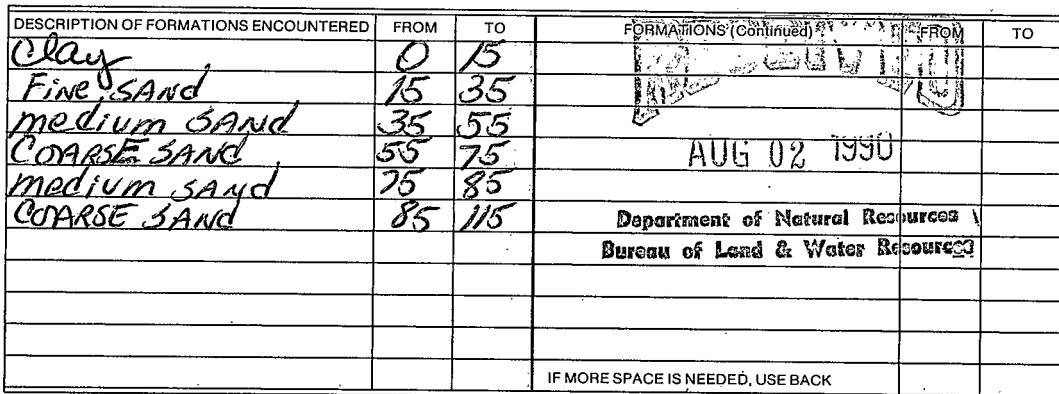 DESCRIPTION OF FORMATIONS ENCOUNTERED FROM TO FORMATIONS (Continued) FROM TO
Clay 0 15
Fine SAND 15 35
medium SAND 35 55
COARSE SAND 55 75
medium SAND 75 85
COARSE SAND 85 115
RECEIVED
AUG 02 1990
Department of Natural Resources
Bureau of Land & Water Resources
IF MORE SPACE IS NEEDED, USE BACK